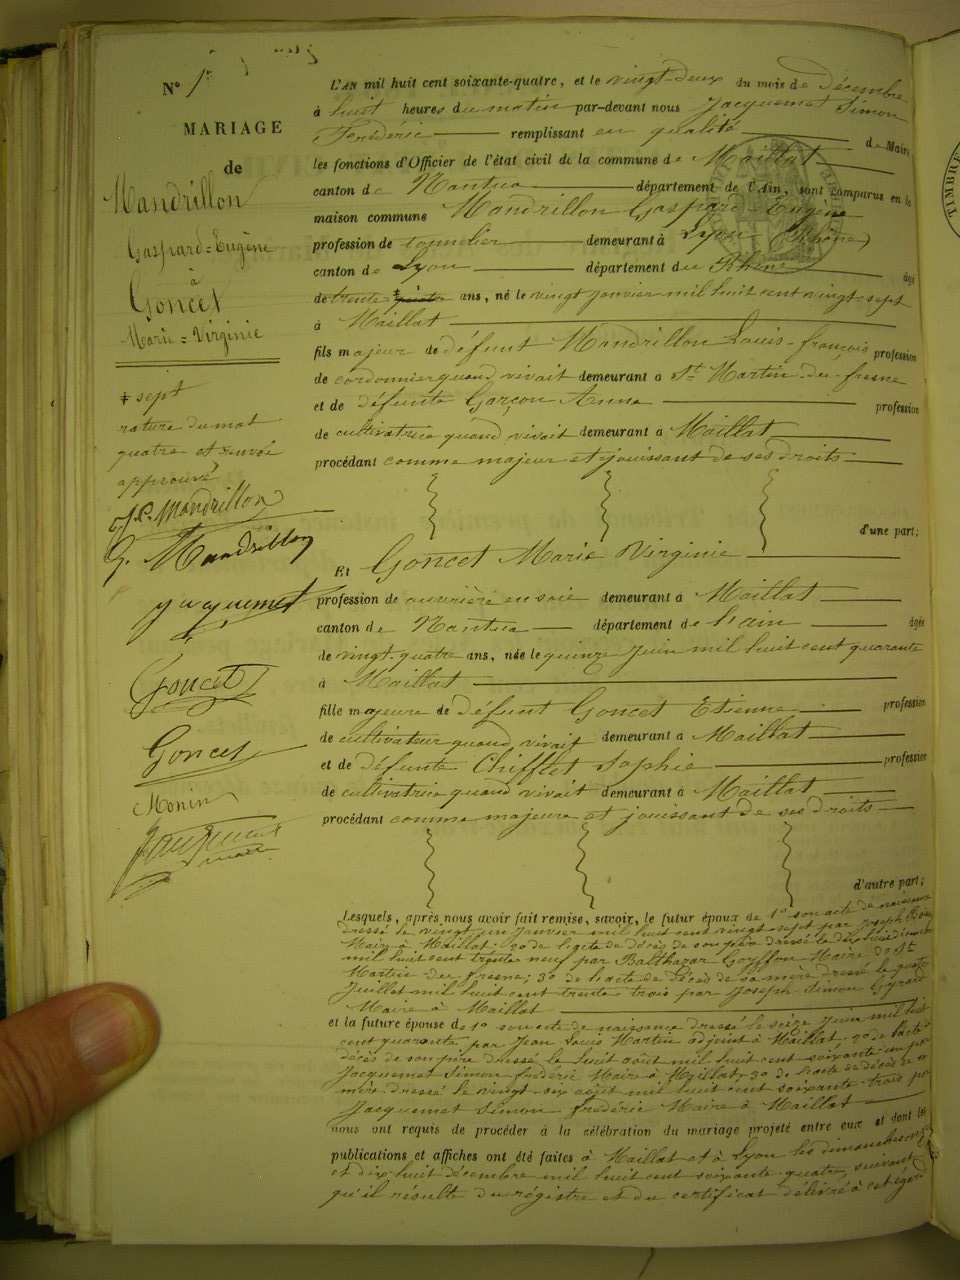 N° 1er
MARIAGE
de
Mandrillon
Gaspard=Eugène
à
Goncet
Marie=Virginie
‡ sept
rature du mot
quatre et renvoi
approuvé
Mandrillon
G. Mandrillon
Jacquemet
Goncet
Goncet
Monin
maire
L'AN mil huit cent soixante-quatre, et le vingt-deux du mois de Décembre
à huit heures du matin par-devant nous Jacquemet Simon
Frédéric remplissant en qualité de Maire
les fonctions d'Officier de l'état civil de la commune de Maillat
canton de Nantua département de l'Ain, sont comparus en la
maison commune Mandrillon Gaspard-Eugène
profession de tonnelier demeurant à Lyon (Rhône)
canton de Lyon département du Rhône âgé
de trente ‡ quatre ans, né le vingt janvier mil huit cent vingt-sept
à Maillat
fils majeur de défunt Mandrillon Louis-françois profession
de cordonnier quand vivait demeurant a St Martin-du-fresne
et de défunte Garçon Anne profession
de cultivatrice quand vivait demeurant a Maillat
procédant comme majeur et jouissant de ses droits
d'une part;
Et Goncet Marie Virginie
profession de ouvrière en soie demeurant à Maillat
canton de Nantua département de l'ain âgée
de vingt-quatre ans, née le quinze juin mil huit cent quarante
à Maillat
fille majeure de défunt Goncet Etienne profession
de cultivateur quand vivait demeurant à Maillat
et de défunte Chifflet Sophie profession
de cultivatrice quand vivait demeurant à Maillat
procédant comme majeure et jouissant de ses droits
d'autre part;
Lesquels, après nous avoir fait remise, savoir, le futur époux de 1° son acte de naissance
dressé le vingt un janvier mil huit cent vingt sept par Joseph
Maire à Maillat; 2° de l'acte de décès de son père dressé le
mil huit cent trente neuf par Balthazar Goyffon Maire de St
Martin du fresne; 3° de l'acte de décès de sa mère dressé le quatre
Juillet mil huit cent trente trois par Joseph Simon
Maire à Maillat
et la future épouse de 1° son acte de naissance dressé le seize Juin mil huit
cent quarante par Jean Louis Martin adjoint à Maillat, 2° de l'acte de
décès de son père dressé le huit août mil huit cent soixante-un par
Jacquemet Simon frédéric Maire à Maillat, 3° de l'acte de décès de sa
mère dressé le vingt-six août mil huit cent soixante-trois par
Jacquemet Simon frédéric Maire à Maillat
nous ont requis de procéder à la célébration du mariage projeté entre eux et dont les
publications et affiches ont été faites à Maillat et à Lyon les dimanches onze
et dix-huit décembre mil huit cent soixante-quatre, suivant
qu'il résulte du régistre et du certificat délivré à cet égard
TIMBRE